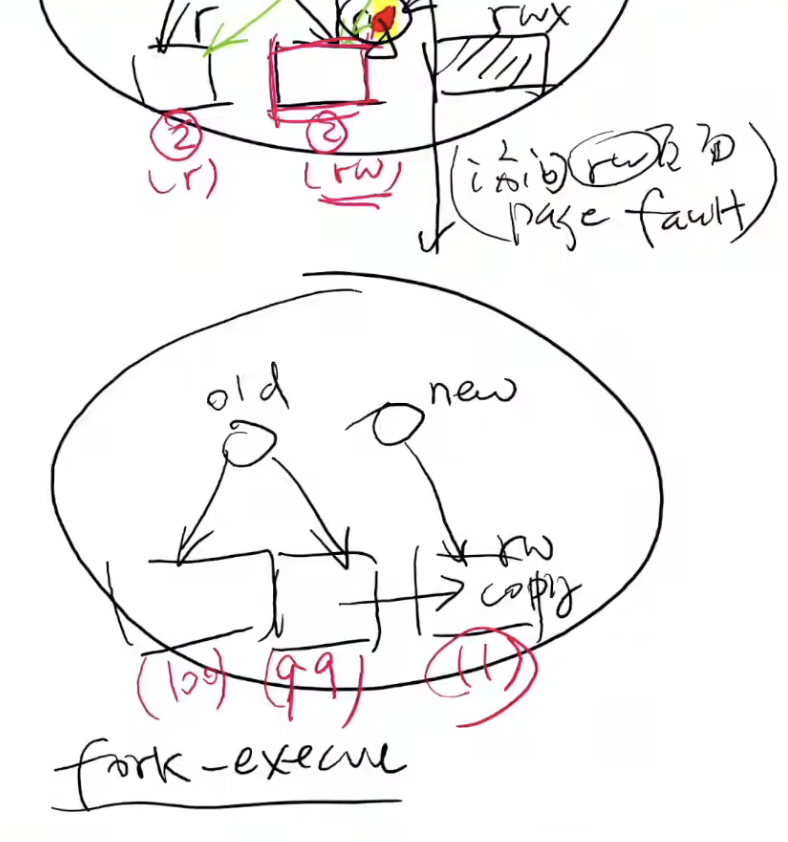 r
rwx
② ②
(r) (rw)
rw
page fault)
old new
rw
copy
(100) (99) (11)
fork-execve